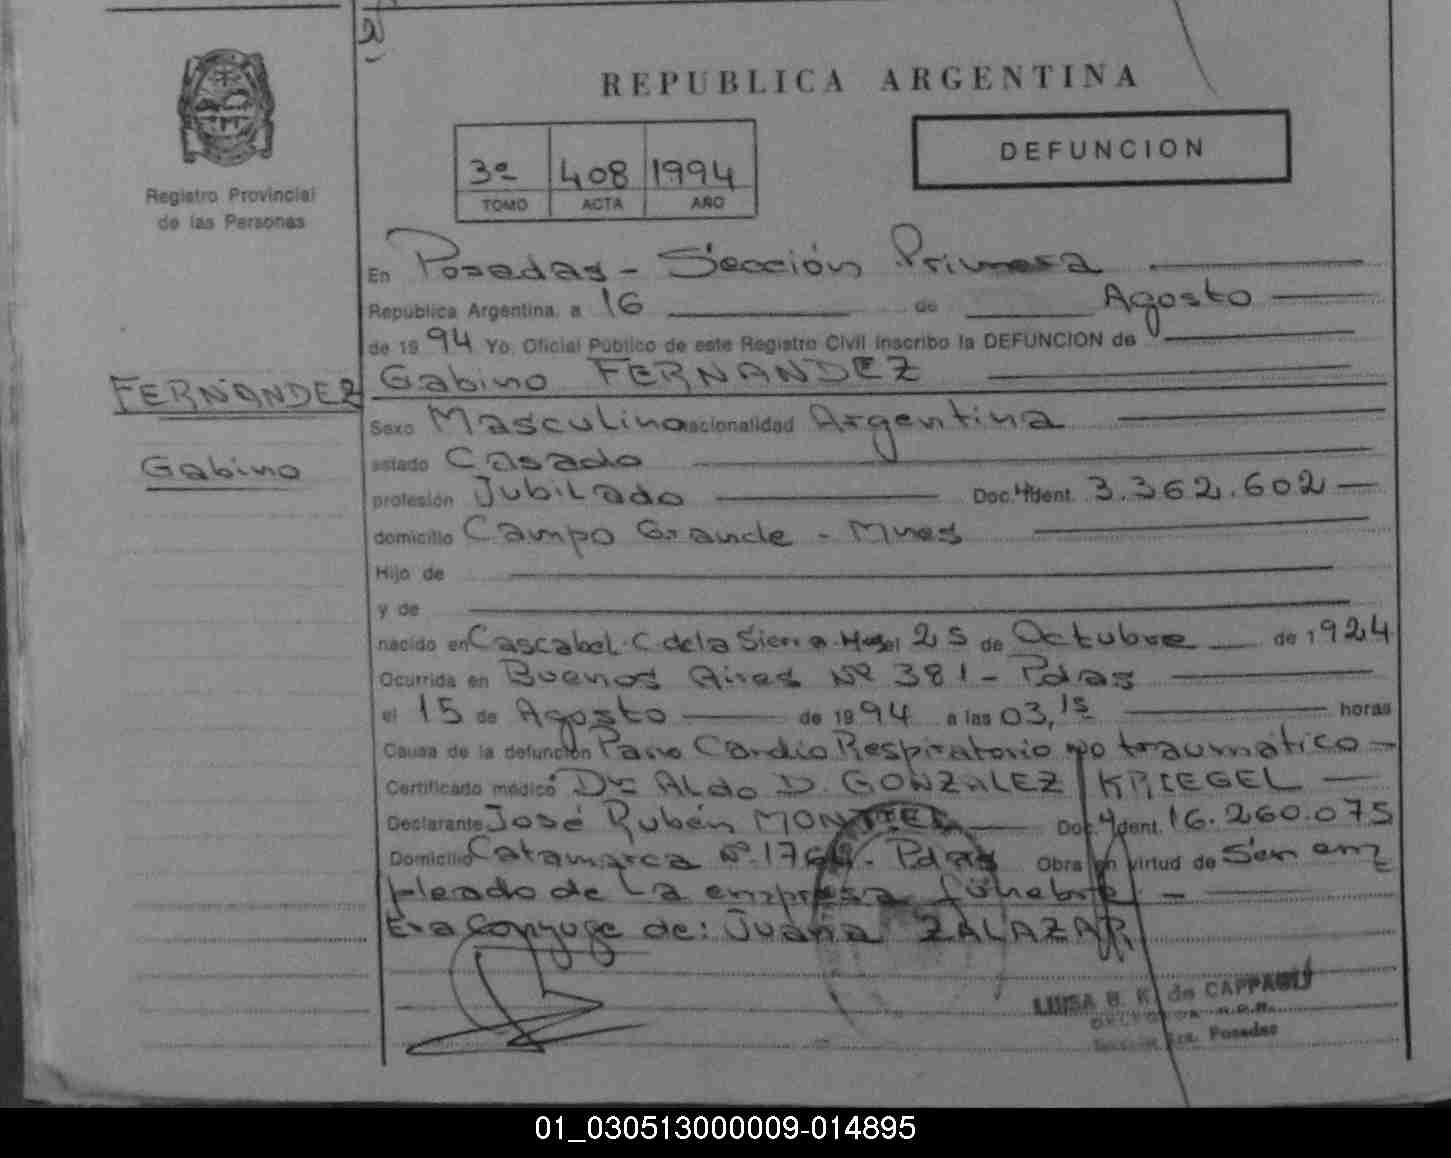 REPUBLICA ARGENTINA
DEFUNCION
3º 408 1994
TOMO ACTA AÑO
Registro Provincial
de las Personas
En Posadas - Sección Primera
República Argentina, a 16 de Agosto
de 19 94 Yo, Oficial Público de este Registro Civil inscribo la DEFUNCION de
Gabino FERNANDEZ
FERNANDEZ
Gabino
Sexo Masculino nacionalidad Argentina
estado Casado
profesión Jubilado Doc. Ident. 3.362.602
domicilio Campo Grande - Mnes
Hijo de
y de
nacido en Cascabel - C. de la Sierra - el 25 de Octubre de 1924
Ocurrida en Buenos Aires Nº 381 - Pdas
el 15 de Agosto de 19 94 a las 03,15 horas
Causa de la defunción Paro Cardio Respiratorio no traumático
Certificado médico Dr Aldo D. GONZALEZ KRIEGEL
Declarante José Rubén Doc. Ident. 16.260.075
Domicilio Catamarca Nº - Pdas Obra en virtud de Ser em
pleado de la empresa fúnebre -
Era Conyuge de: Juana ZALAZAR
LUISA B. K. de CAPPAGLI
Posadas
01_030513000009-014895